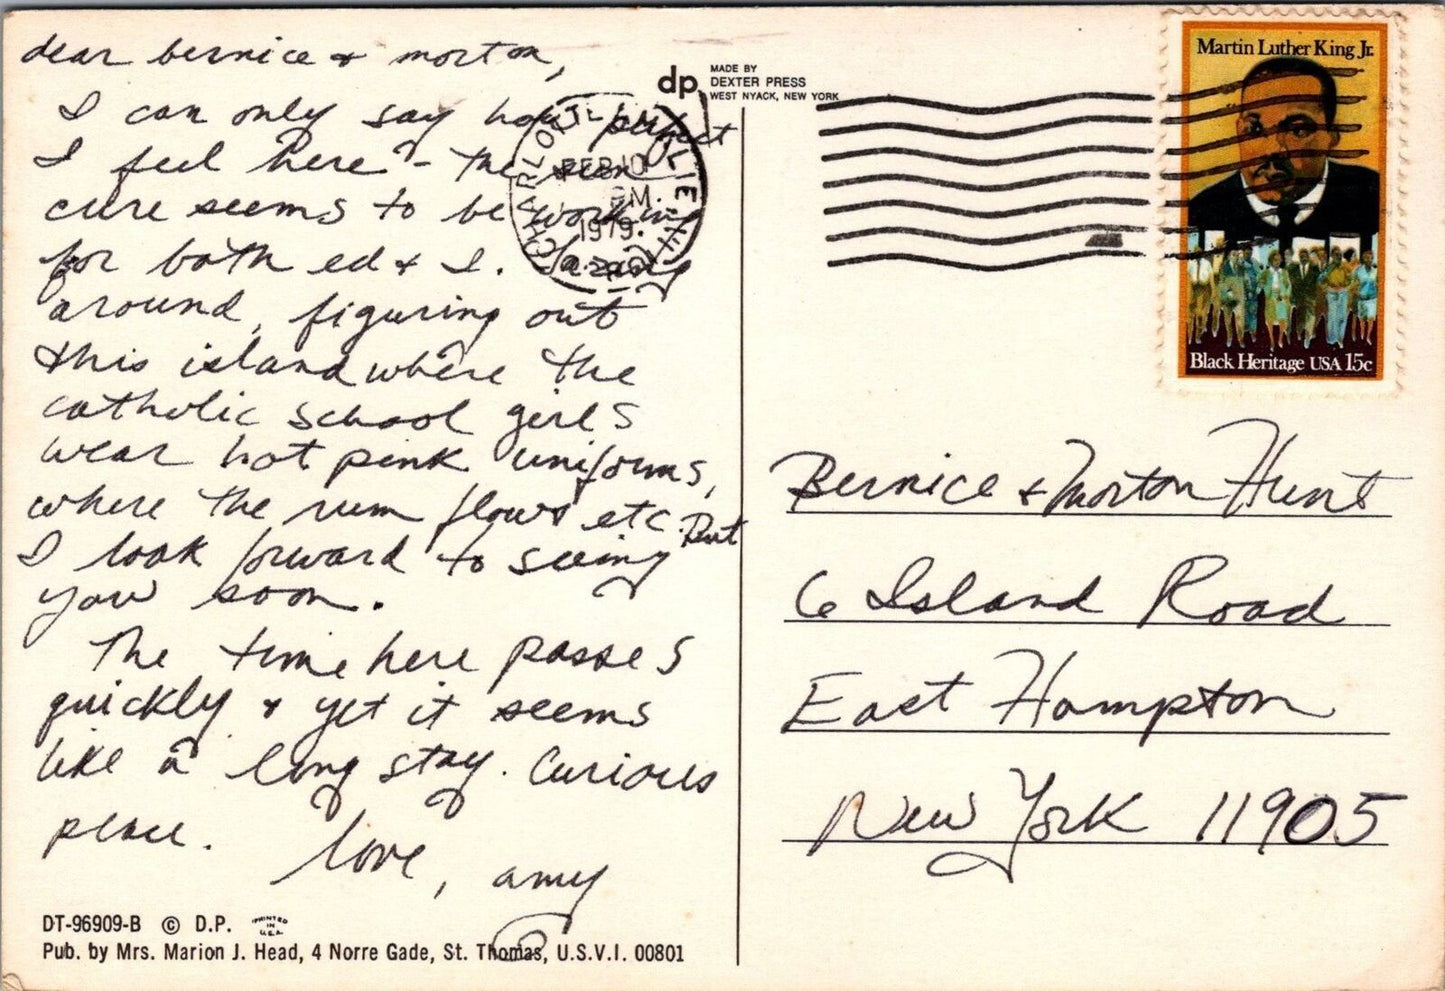 dear bernice & morton,
I can only say how perfect
I feel here - the rum
cure seems to be working
for both ed & I. lazing
around, figuring out
this island where the
catholic school girls
wear hot pink uniforms,
where the rum flows etc. But
I look forward to seeing
you soon.
The time here passes
quickly & yet it seems
like a long stay. Curious
place.
love, amy
DT-96909-B © D.P. PRINTED IN U.S.A.
Pub. by Mrs. Marion J. Head, 4 Norre Gade, St. Thomas, U.S.V.I. 00801
dp MADE BY
DEXTER PRESS
WEST NYACK, NEW YORK
CHARLOTTE AMALIE, VI
FEB 10
PM
1979
Martin Luther King Jr.
Black Heritage USA 15c
Bernice & Morton Hunt
6 Island Road
East Hampton
New York 11905